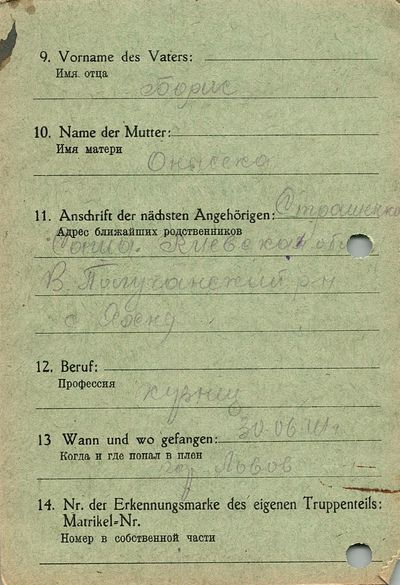 9. Vorname des Vaters:
Имя отца
Борис
10. Name der Mutter:
Имя матери
11. Anschrift der nächsten Angehörigen: Страшенко
Адрес ближайших родственников
Киевская обл
В. Получанский р-н
с
12. Beruf:
Профессия
кузнец
13 Wann und wo gefangen: 30.06.41г
Когда и где попал в плен
гор Львов
14. Nr. der Erkennungsmarke des eigenen Truppenteils:
Matrikel-Nr.
Номер в собственной части